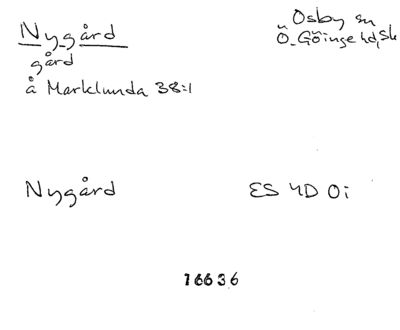 Nygård
gård
å Marklunda 38:1
Osby sn
Ö. Göinge hd, Sk
Nygård
ES 4D 0i
16636